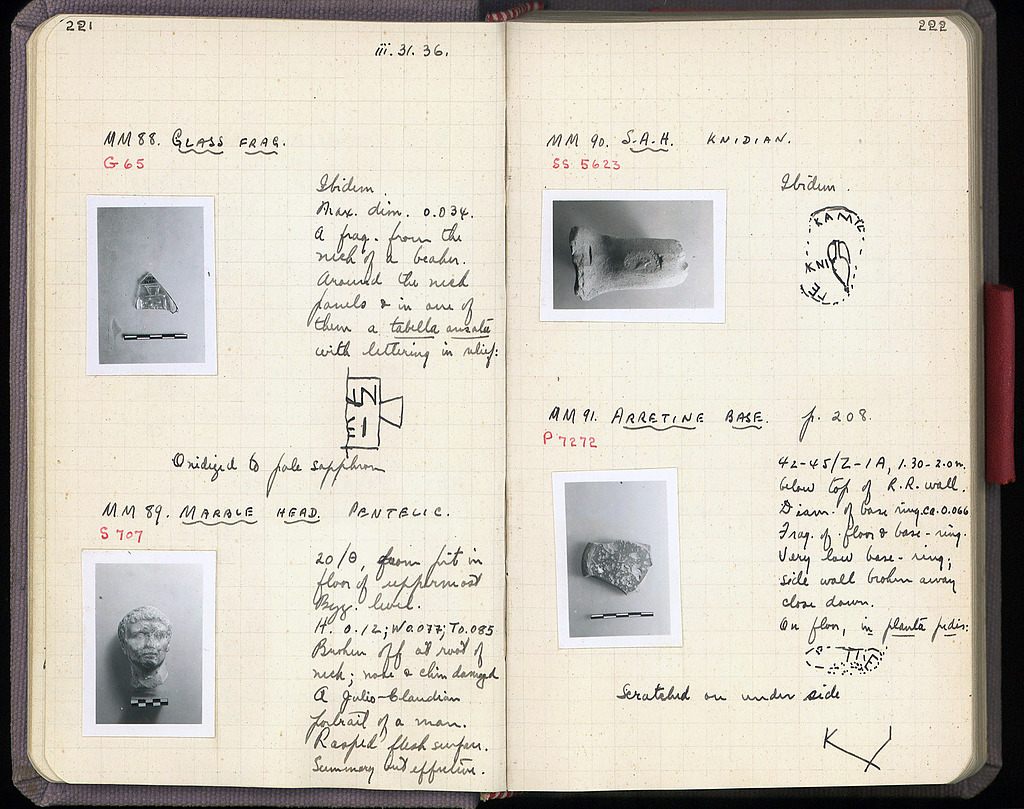 221
iii. 31. 36.
MM 88. GLASS FRAG.
G 65
Ibidem.
Max. dim. 0.034.
A frag. from the
neck of a beaker.
Around the neck
panels & in one of
them a tabella ansata
with lettering in relief:
Oxidized to pale sapphron
MM 89. MARBLE HEAD. PENTELIC.
S 707
20/Θ, from pit in
floor of uppermost
Byz. level.
H. 0.12; W 0.077; T 0.085
Broken off at root of
neck; nose & chin damaged
A Julio-Claudian
portrait of a man.
Rasped flesh surface.
Summary but effective.
222
MM 90. S.A.H. KNIDIAN.
SS 5623
Ibidem.
ΚΑΜΥ
ΚΝΙ
MM 91. ARRETINE BASE. p. 208.
P 7272
42-45/Z-IA, 1.30-2.0 m.
below top of R.R. wall.
Diam. of base ring ca. 0.066
Frag. of floor & base-ring.
Very low base-ring;
side wall broken away
close down.
On floor, in planta pedis:
Scratched on under side
K